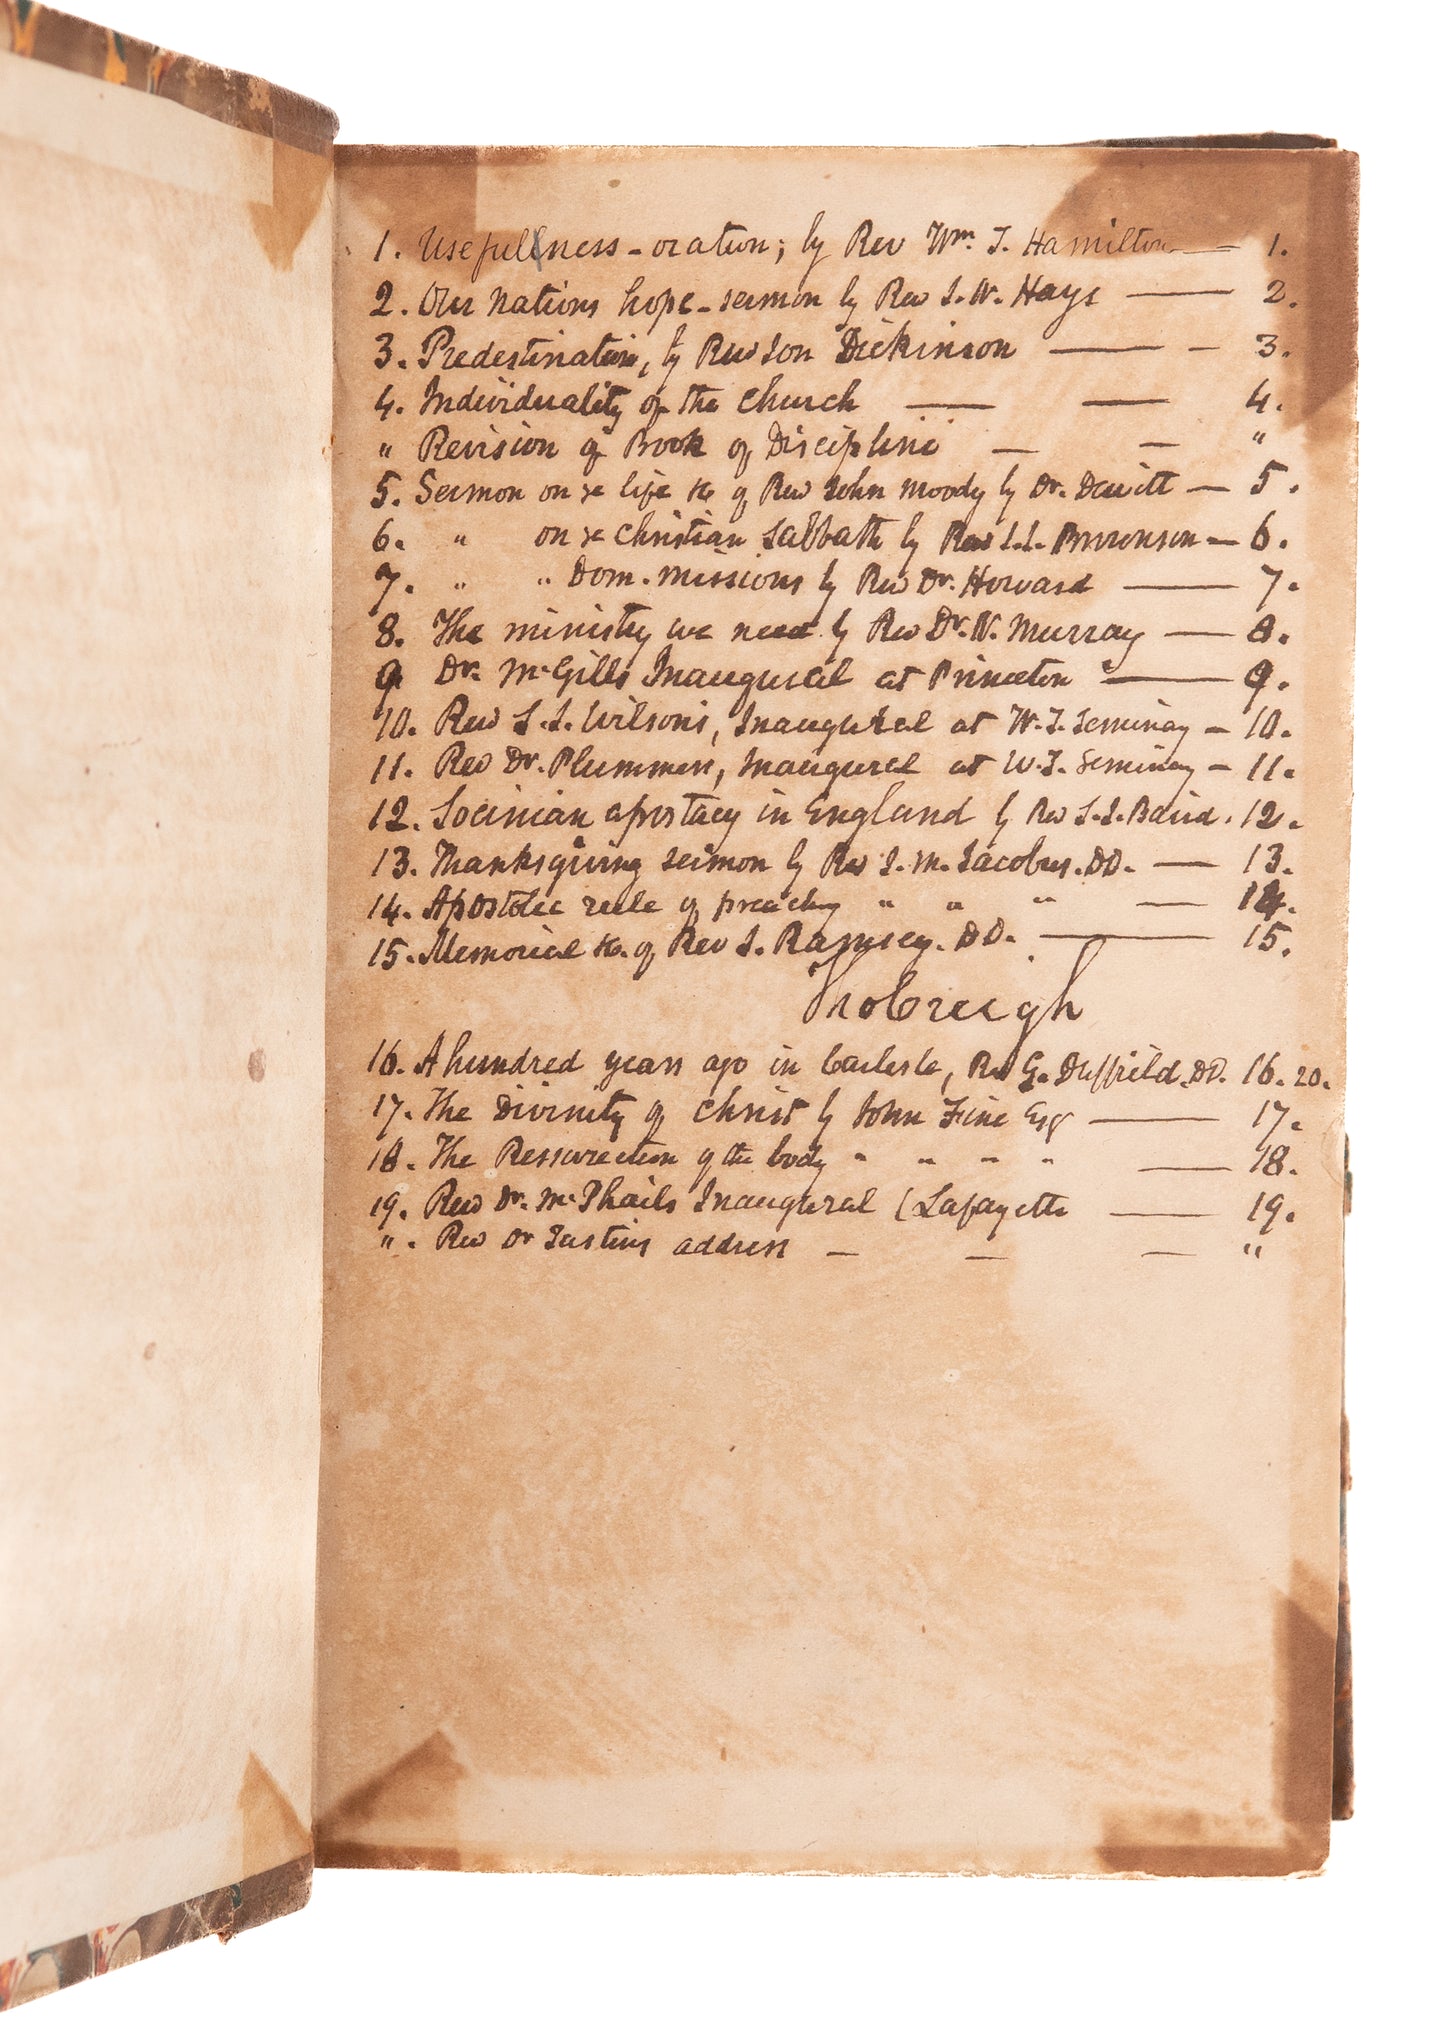 1. Usefullness - oration; by Rev Wm. T. Hamilton — 1.
2. Our Nations hope - sermon by Rev I. W. Hays — 2.
3. Predestination, by Rev Jon Dickinson — — 3.
4. Individuality of the Church — — 4.
" Revision of Book of Discipline — — "
5. Sermon on ye life &c of Rev John Moody by Dr. Dewitt — 5.
6. " on ye Christian Sabbath by Rev I. I. Brownson — 6.
7. " " Dom. Missions by Rev Dr. Howard — 7.
8. The ministry we need by Rev Dr. N. Murray — 8.
9 Dr. McGills Inaugural at Princeton — 9.
10. Rev S. J. Wilsons, Inaugural at W. T. Seminay — 10.
11. Rev Dr. Plummers, Inaugural at W. T. Seminay — 11.
12. Socinian apostacy in England by Rev S. J. Baird. 12.
13. Thanksgiving Sermon by Rev I. M. Jacobus. DD. — 13.
14. Apostolic rule of preaching " " " — 14.
15. Memorial &c. of Rev J. Ramsey. DD. — 15.
16. A hundred years ago in Carlisle, Rev G. Duffield. DD. 16. 20.
17. The Divinity of Christ by John Fine Esq — 17.
18. The Ressurection of the body " " " " — 18.
19. Rev Dr. McPhails Inaugural (Lafayette — 19.
" . Rev Dr Junkins address — — — "